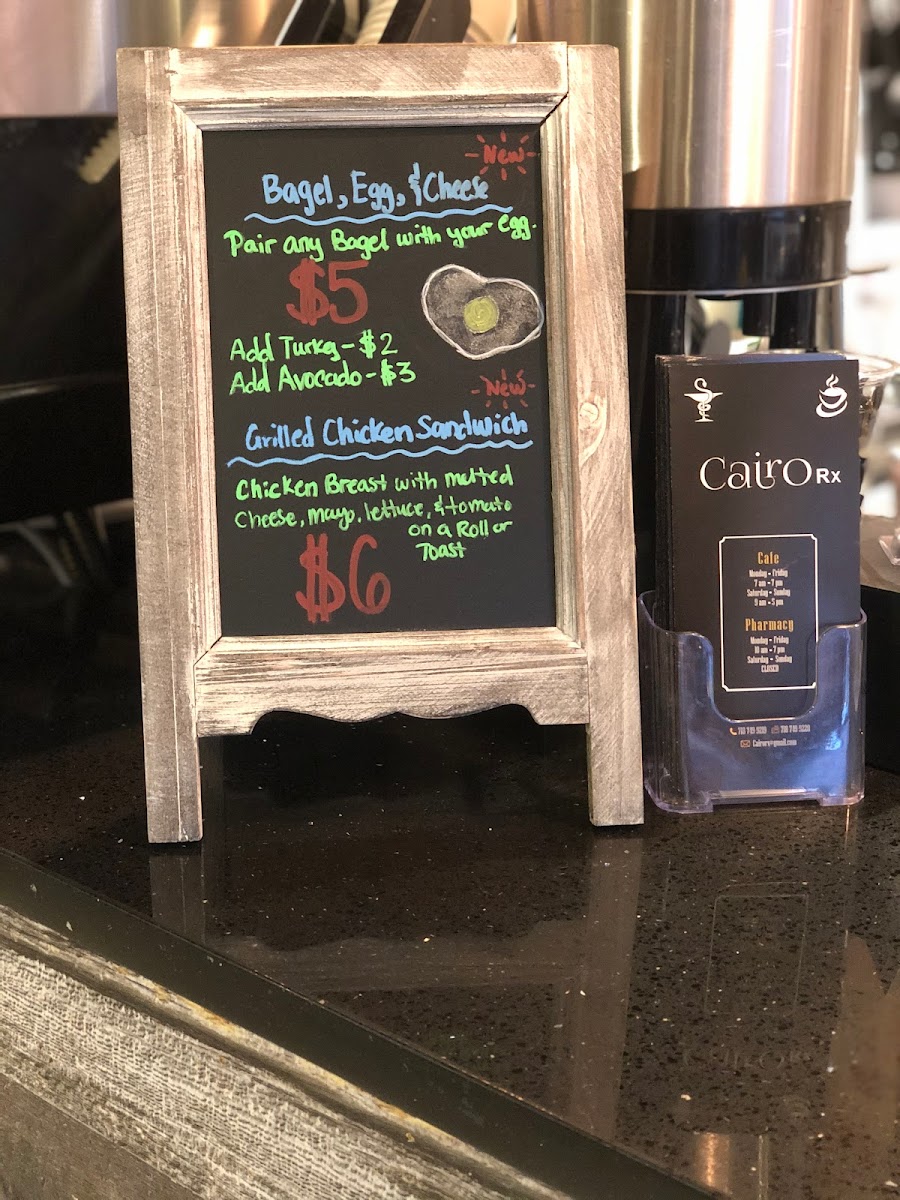 New
Bagel, Egg, & Cheese
Pair any Bagel with your egg.
$5
Add Turkey - $2
Add Avocado - $3
New
Grilled Chicken Sandwich
Chicken Breast with melted
Cheese, mayo, lettuce, & tomato
on a Roll or
Toast
$6
Cairo Rx
Cafe
Monday - Friday
7 am - 7 pm
Saturday - Sunday
9 am - 5 pm
Pharmacy
Monday - Friday
10 am - 7 pm
Saturday - Sunday
CLOSED
Cairorx@gmail.com